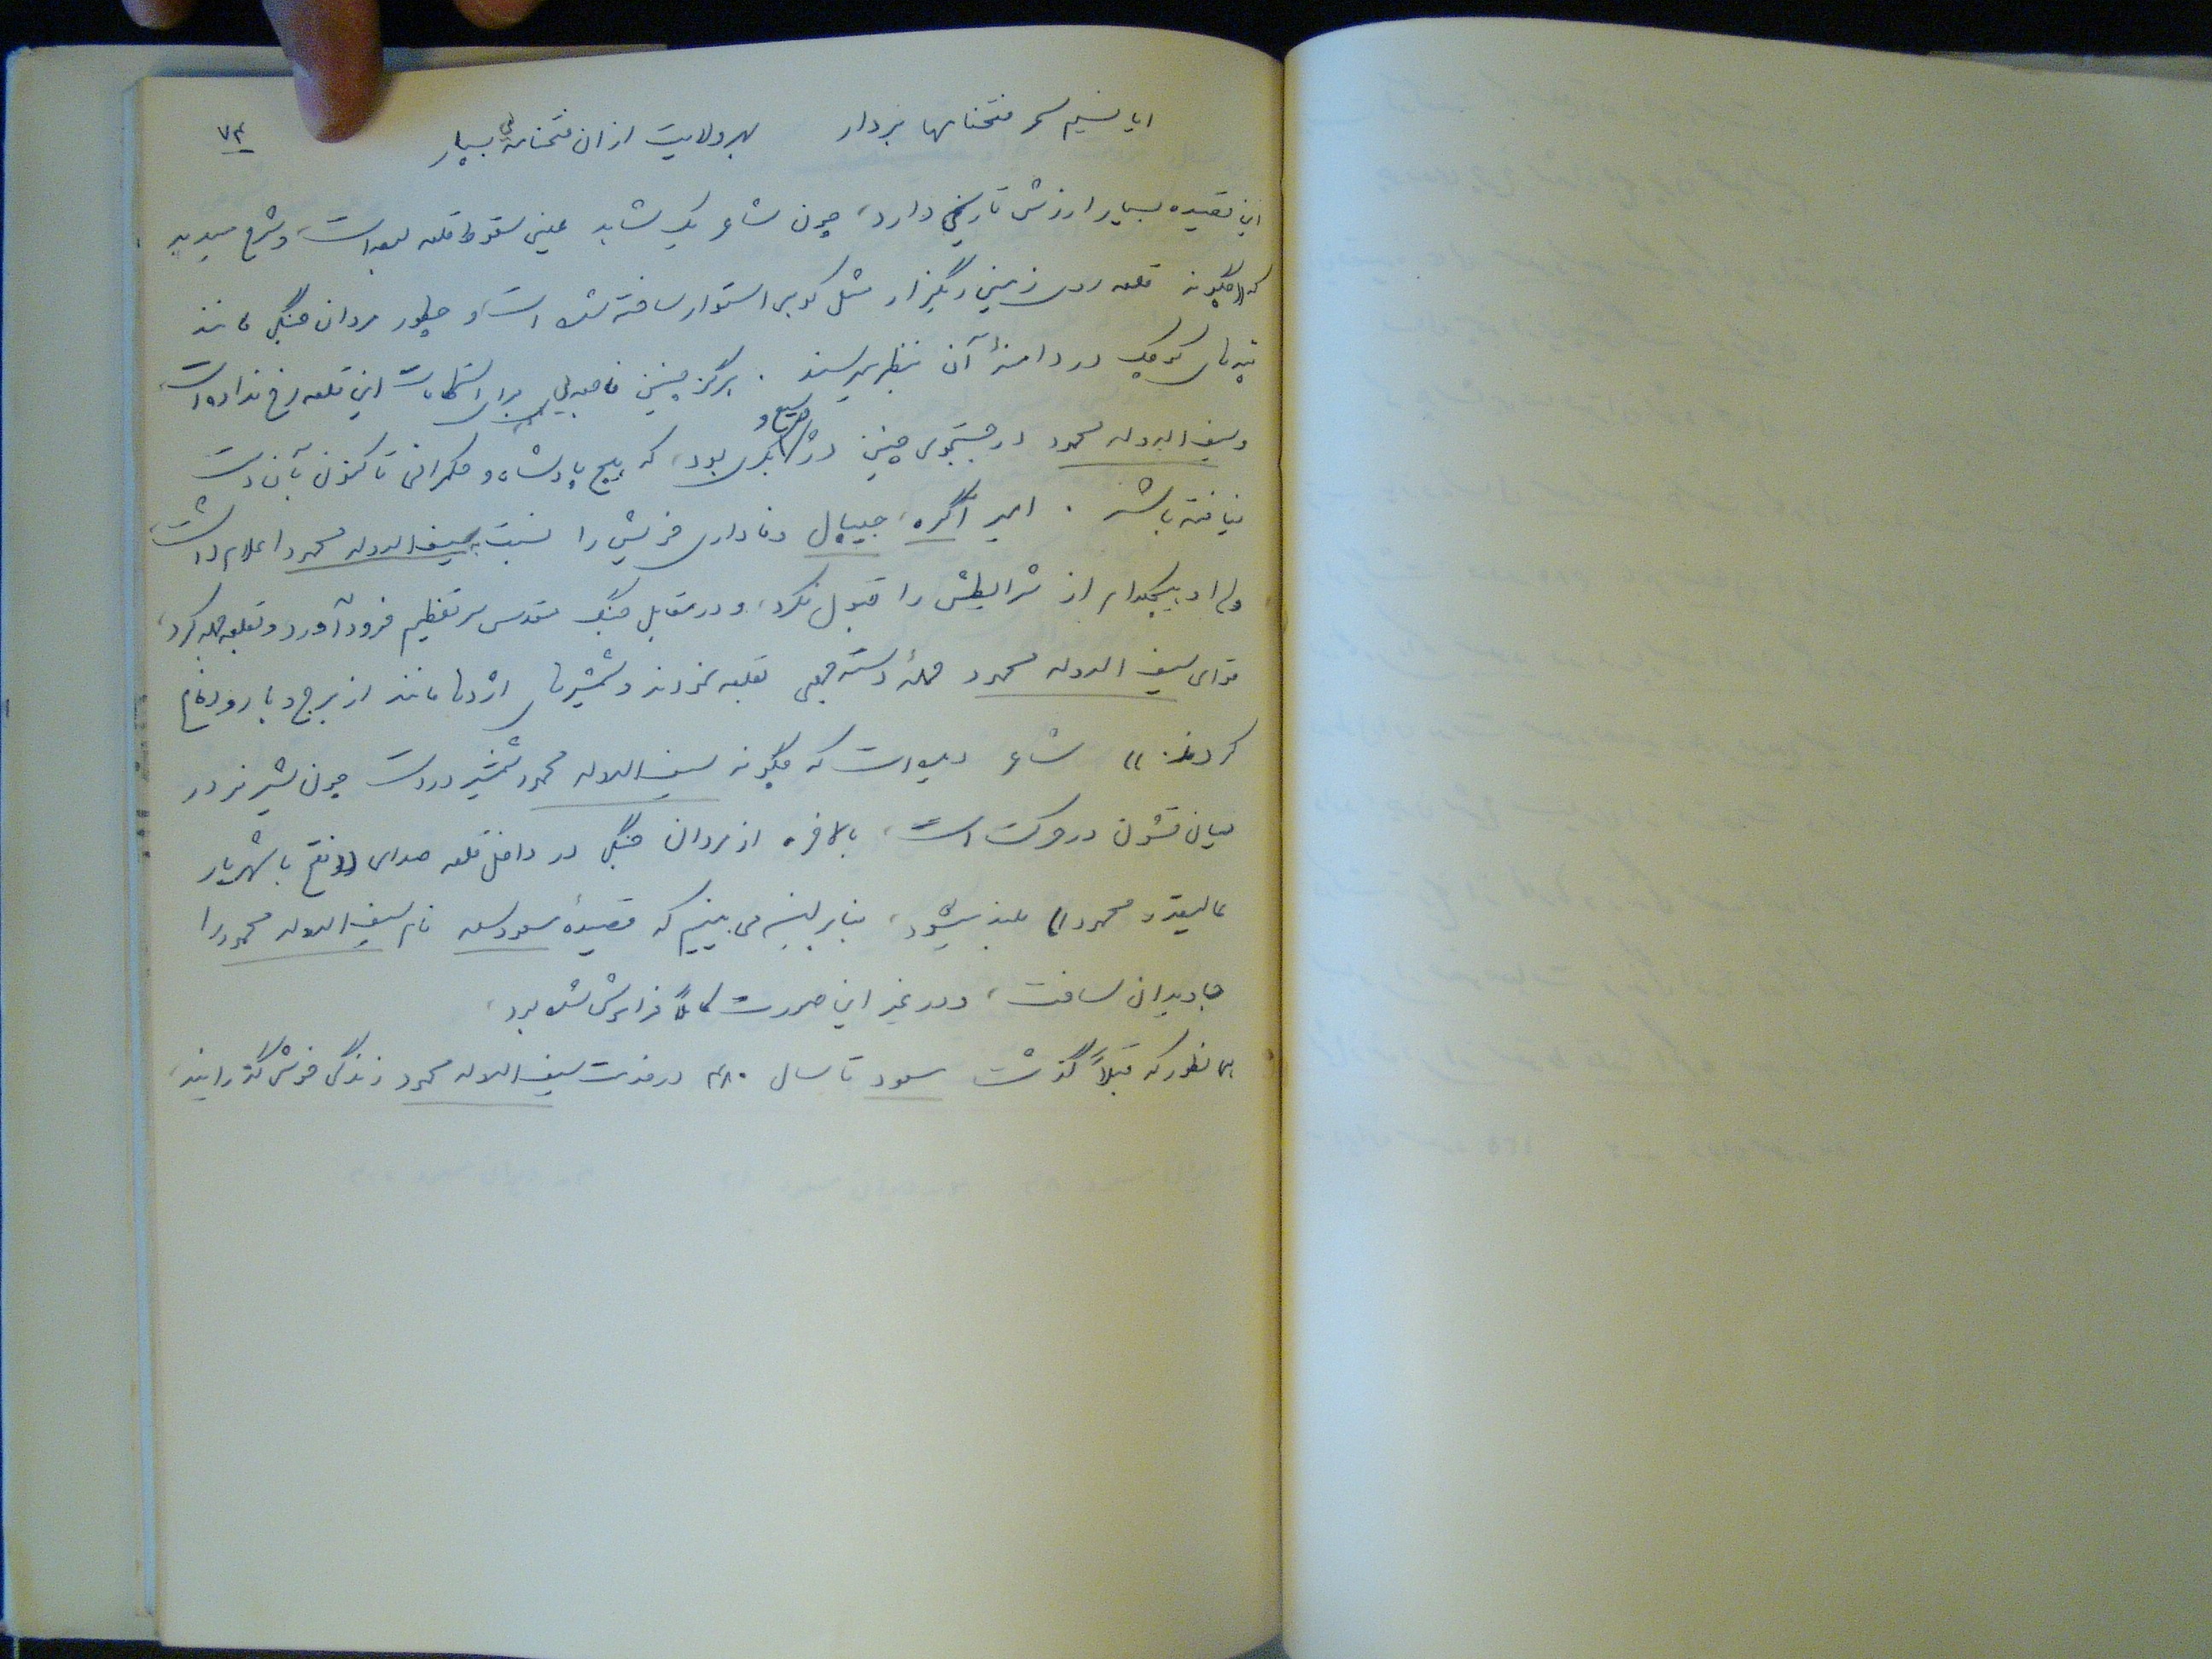 ۷۳
ایا نسیم سحر فتحنامها بردار بهر ولایت از ان فتحنامه‌ئی بسپار
این قصیده بسیار ارزش تاریخی دارد، چون شاعر یک شاهد عینی سقوط قلعه بوده است، و شرح میدهد
که «چگونه قلعه روی زمینی ریگزار مثل کوهی استوار ساخته شده است، و چطور مردان جنگی مانند
تپه‌های کوچک در دامنهٔ آن بنظر میرسند. هرگز چنین فاجعه‌یی برای استحکامات این قلعه رخ نداده است،
و سیف الدوله محمود در جستجوی چنین دژ وسیع و بکری بود، که هیچ پادشاه و حکمرانی تا کنون بآن دست
نیافته باشد. امیر آگره، جیپال وفاداری خویش را نسبت به سیف الدوله محمود اعلام داشت،
ولی او هیچکدام از شرایطش را قبول نکرد، و در مقابل جنگ مقدس سر تعظیم فرود آورد و بقلعه حمله کرد،
قوای سیف الدوله محمود حملهٔ دسته جمعی بقلعه نمودند و شمشیرهای اژدها مانند از برج و بارو دفاع
کردند.» شاعر دیده است که چگونه سیف الدوله محمود شمشیر در دست چون شیر نر در
میان قشون در حرکت است، بالاخره از مردان جنگی در داخل قلعه صدای «فتح با شهریار
عالیقدر محمود» بلند میشود، بنابر این می بینیم که قصیدهٔ مسعود سعد نام سیف الدوله محمود را
جاویدان ساخت، و در غیر این صورت کاملاً فراموش شده بود،
همانطور که قبلاً گذشت مسعود تا سال ۴۸۰ در خدمت سیف الدوله محمود زندگی خوش گذرانید،